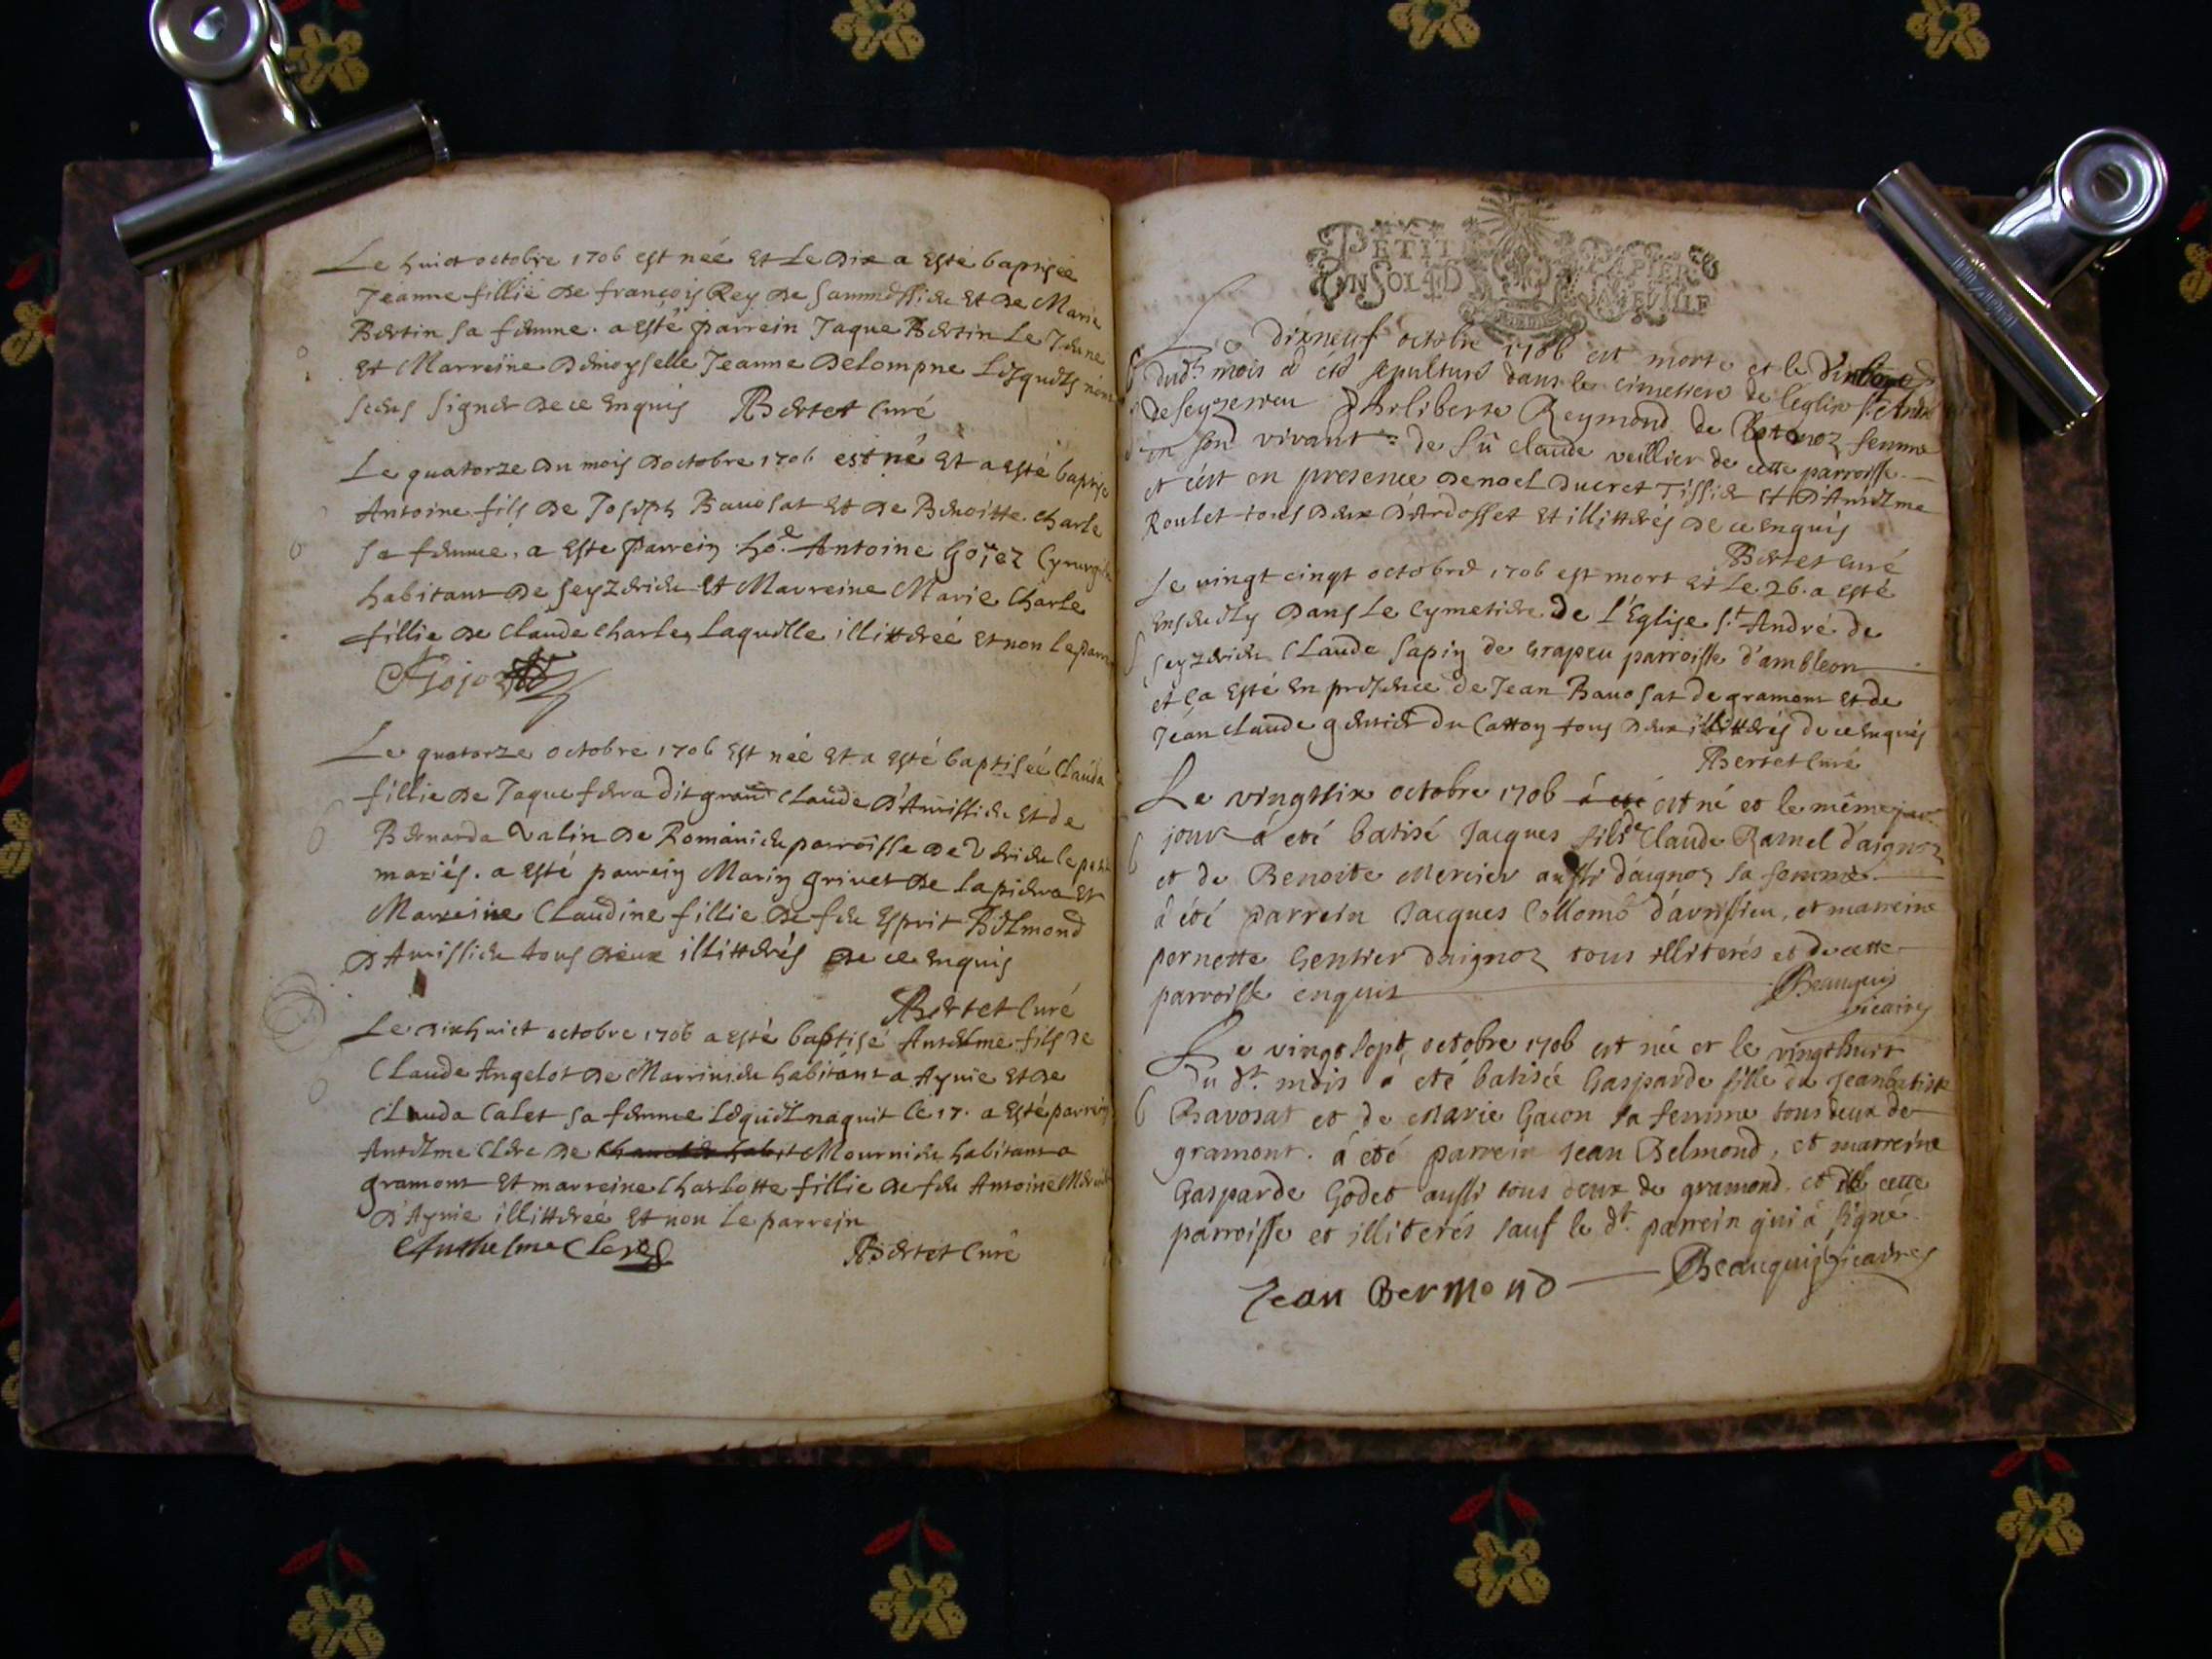 Le huict octobre 1706 est neé et Le Dix a esté baptisée
Jeanne fillie de françois Rey de et de Marie
Bertin sa femme. a esté parrein Jaque Bertin Le Jeune
et Marreine Demoyselle Jeanne Delompne Lesquels nont
sceus signer de ce enquis Bertet Curé
Le quatorze du mois doctobre 1706 est né et a esté baptisé
Antoine fils de Joseph Bavosat et de Benoitte Charle
sa femme, a este parrein ho.e Antoine Gojoz Cyrurgien
habitant de Seyzerieu et Marreine Marie Charle
fillie de Claude Charle, Laquelle illitteréé et non le parrein
AGojoz
Le quatorze octobre 1706 est née et a esté baptiséé Clauda
fillie de Jaque ferra dit grand Claude d'Avrissieu et de
Bernarda Valin de Romanieu parroisse de Virieu le petit
mariés. a esté parrein Marin grivet de la pierra et
Marreine Claudine fillie de feu Esprit Belmond
d'Avrissieu tous deux illitterés de ce enquis
Bertet Curé
Le dixhuict octobre 1706 a esté baptisé Antelme fils de
Claude Angelot de Marrinieu habitant a Aynie et de
Clauda Calet sa femme Lequel naquit le 17. a esté parrein
Antelme Clerc de Mournieu habitant a
gramont et marreine Charlotte fillie de feu Antoine
d'Aynie illitterée et non le parrein
Anthelme Clerc Bertet Curé
PETIT PAPIER
UN SOL 4 D LA FEUILLE
Le dixneuf octobre 1706 est morte et le
dud.t mois a été sepulturé dans le cimetiere de l'eglise S.t André
de Seyzerieu Philiberte Reymond de femme
en son vivant de fû Claude veillier de cette parroisse
et c'est en presence de noel Ducret Tissier et d'Antelme
Roulet tous deux d'Ardosset et illitterés de ce enquis
Bertet curé
Le vingt cinqt octobre 1706 est mort et Le 26. a esté
Ensevely dans Le Cymetiere de L'Eglise S.t André de
Seyzerieu Claude Sapin de Crapeu parroisse d'ambleon
et ça esté en presence de Jean Bavosat de gramont et de
Jean Claude du Catton tous deux illitterés de ce enquis
Bertet Curé
Le vingtsix octobre 1706 a eté est né et le même jour
jour a eté batisé Jacques fils de Claude Ramel d'aignoz
et de Benoite Mercier aussi d'aignoz sa femme
a été parrein Jacques Collomb d'avrissieu, et marreine
pernette Gentier daignoz tous illiterés et de cette
parroisse enquis Beauquis
vicaire
Le vingt sept octobre 1706 est née et le vingthuit
du d.t mois a eté batisée Gasparde fille de Jeanbatiste
Bavosat et de Marie Gacon sa femme tous deux de
gramont. a eté parrein Jean Belmond, et marreine
Gasparde Godet aussi tous deux de gramond et de cette
parroisse et illiterés sauf le d.t parrein qui a signé
Jean Bermond Beauquis vicaire